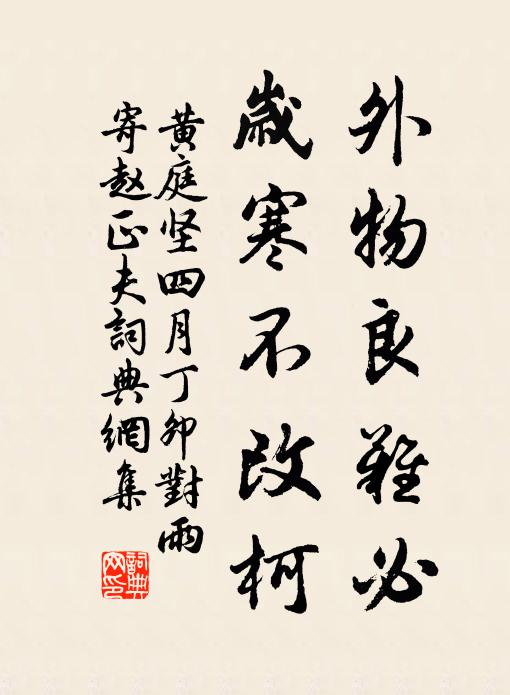 外物良難必
歲寒不改柯
黃庭坚四月丁卯對雨
寄赵正夫詞典網集
詞典
网印